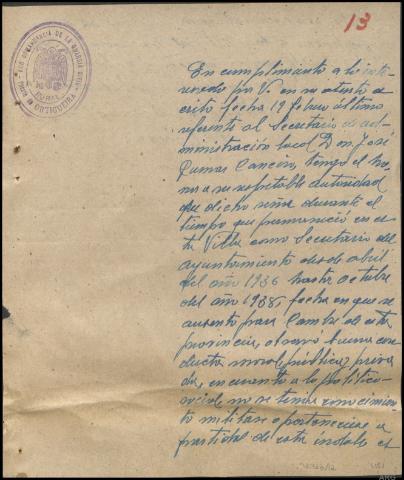 13
COMANDANCIA DE LA GUARDIA CIVIL
ORTIGUEIRA
En cumplimiento a lo
por V. en su atento es
crito fecha 19 febrero último
referente al Secretario de ad-
ministración local Don José
tengo el ho-
nor a su respetable autoridad
que dicho señor durante el
tiempo que permaneció en es
ta Villa como Secretario del
Ayuntamiento desde abril
del año 1936 hasta Octubre
del año 1938, fecha en que se
ausentó para Cambre de esta
provincia, observó buena con
ducta moral pública y priva
da, en cuanto a lo político
social no se tiene conocimien
to militase o perteneciese a
partidos de esta índole